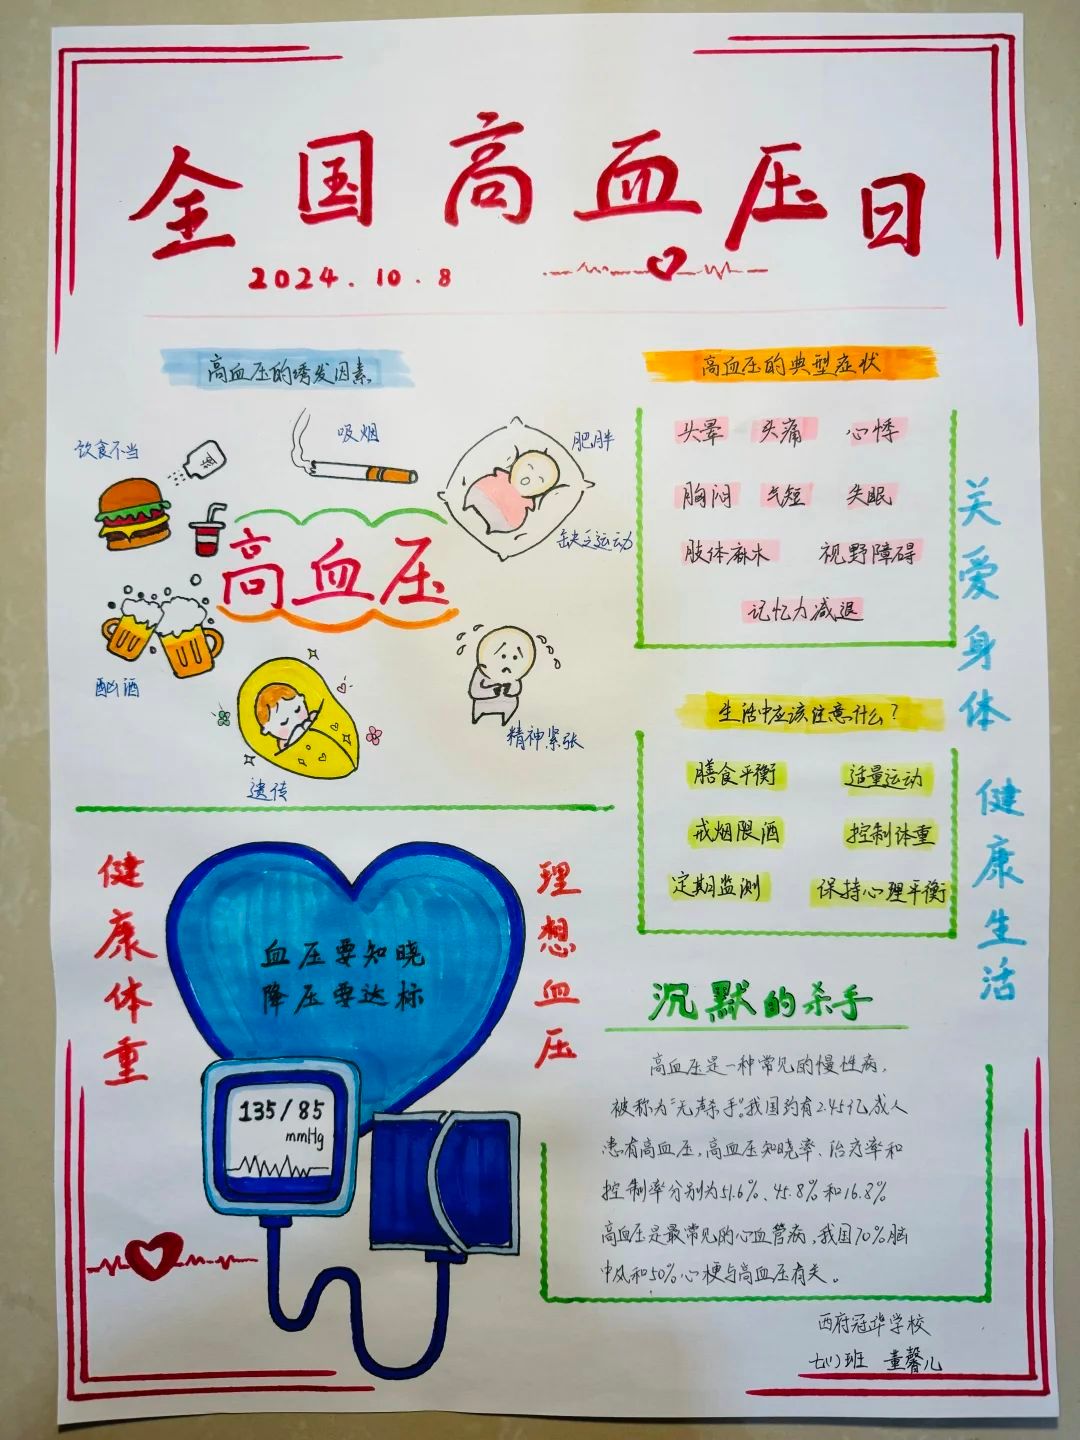 全国高血压日
2024.10.8
高血压的诱发因素
饮食不当
盐
吸烟
肥胖
缺乏运动
高血压
酗酒
遗传
精神紧张
高血压的典型症状
头晕 头痛 心悸
胸闷 气短 失眠
肢体麻木 视野障碍
记忆力减退
生活中应该注意什么?
膳食平衡 适量运动
戒烟限酒 控制体重
定期监测 保持心理平衡
关爱身体 健康生活
健康体重
血压要知晓
降压要达标
理想血压
135/85
mmHg
沉默的杀手
高血压是一种常见的慢性病,
被称为“无声杀手”。我国约有2.45亿成人
患有高血压,高血压知晓率、治疗率和
控制率分别为51.6%、45.8%和16.8%
高血压是最常见的心血管病,我国70%脑
中风和50%心梗与高血压有关。
西府冠华学校
七(1)班 童馨儿